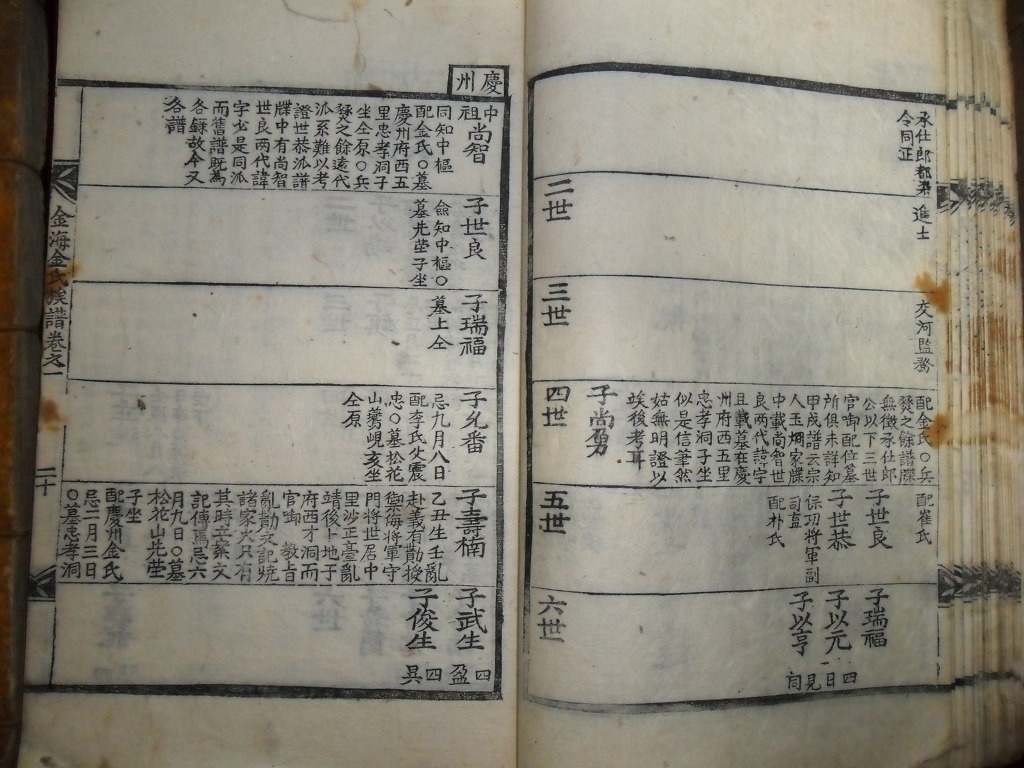 承仕郎都染
令同正
進士
二世
交河監務
三世
配金氏○兵
燹之餘譜牒
無徵承仕郎
公以下三世
官啣配位墓
所俱未詳知
甲戌譜云宗
人玉烱家牒
中載尚智世
良兩代諱字
且載墓在慶
州府西五里
忠孝洞子坐
似是信筆然
姑無明證以
竢後考耳
子尚勇
四世
配崔氏
子世良
子世恭
保功將軍副
司直
配朴氏
五世
子瑞福
子以元
子以亨
四
見
六世
慶州
中祖尚智
同知中樞
配金氏○墓
慶州府西五
里忠孝洞子
坐仝原○兵
燹之餘遠代
派系難以考
證世恭派譜
牒中有尚智
世良兩代諱
字必是同派
而舊譜既為
各録故今又
各譜
子世良
僉知中樞○
墓先塋子坐
子瑞福
墓上仝
子允番
忌九月八日
配李氏父震
忠○墓松花
山鶯峴亥坐
仝原
子壽楠
乙丑生壬亂
赴義有勛授
禦侮將軍守
門將世居中
里沙正臺亂
靖後卜地于
府西才洞而
官啣教旨
亂勛文記燒
諸家火只有
其時立案文
記傳焉忌六
月九日○墓
松花山先塋
子坐
配慶州金氏
忌二月三日
○墓忠孝洞
子武生
子俊生
四盈
四具
金海金氏族譜卷之一
二十